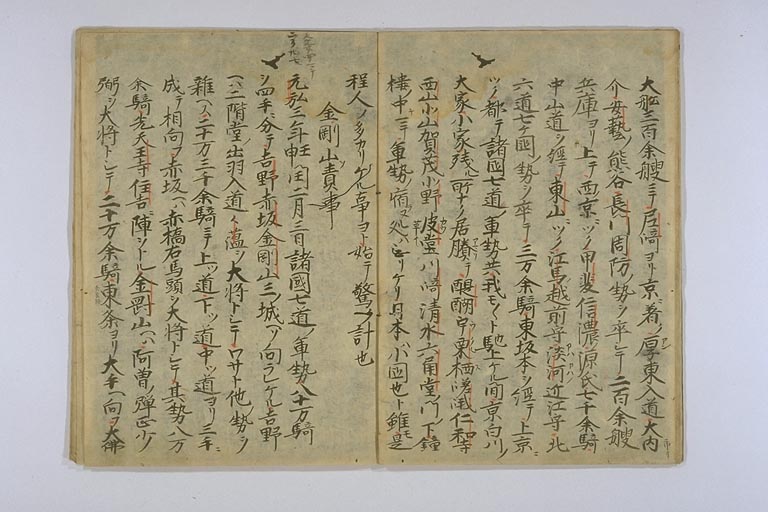 大船三百余艘ニテ尼﨑ヨリ京ニ著ク厚東入道大内
介安藝ノ熊谷長門周防ノ勢ヲ卒シテ二百余艘
兵庫ヨリ上テ西京ニツク甲斐信濃ノ源氏七千余騎
中山道ヲ經テ東山ニツク江馬越前守淡河近江守北
六道七ヶ國勢ヲ卒シテ三万余騎東坂本ヲ經テ上京ニ
ツク都テ諸國七道ノ軍勢共我モ〱ト馳上ケル間京白川ノ
大家小家殘ル所ナク居賸テ醍醐宇栗栖嵯峨仁和寺
西山北山賀茂小野皮堂川﨑清水六角堂ノ門ノ下鐘
樓ノ中ニテ軍勢ノ宿ヌ処ハナカリケリ日本ハ小國也ト雖モ是
程人ノ多カリケル事ヨト始テ驚ク計也
金剛山責事
元弘三年壬申閏二月三日諸國七道ノ軍勢八十万騎
ヲ四手ニ分テ吉野赤坂金剛山三ノ城ヘソ向ラレケル吉野
ヘハ二階堂出羽入道々蘊ヲ大將トシテワサト他ノ勢ヲ
雜ヘス二万三千余騎ニテ上ツ道下ツ道中ツ道ヨリ三手ニ
成テ相向フ赤坂ヘハ赤橋右馬頭ヲ大將トシテ其勢八万
余騎先天王寺住吉ニ陣ヲトル金罡山ヘハ阿曽ノ彈正少
弼ヲ大将トシテ二十万余騎東条ヨリ大手ヘ向フ大佛